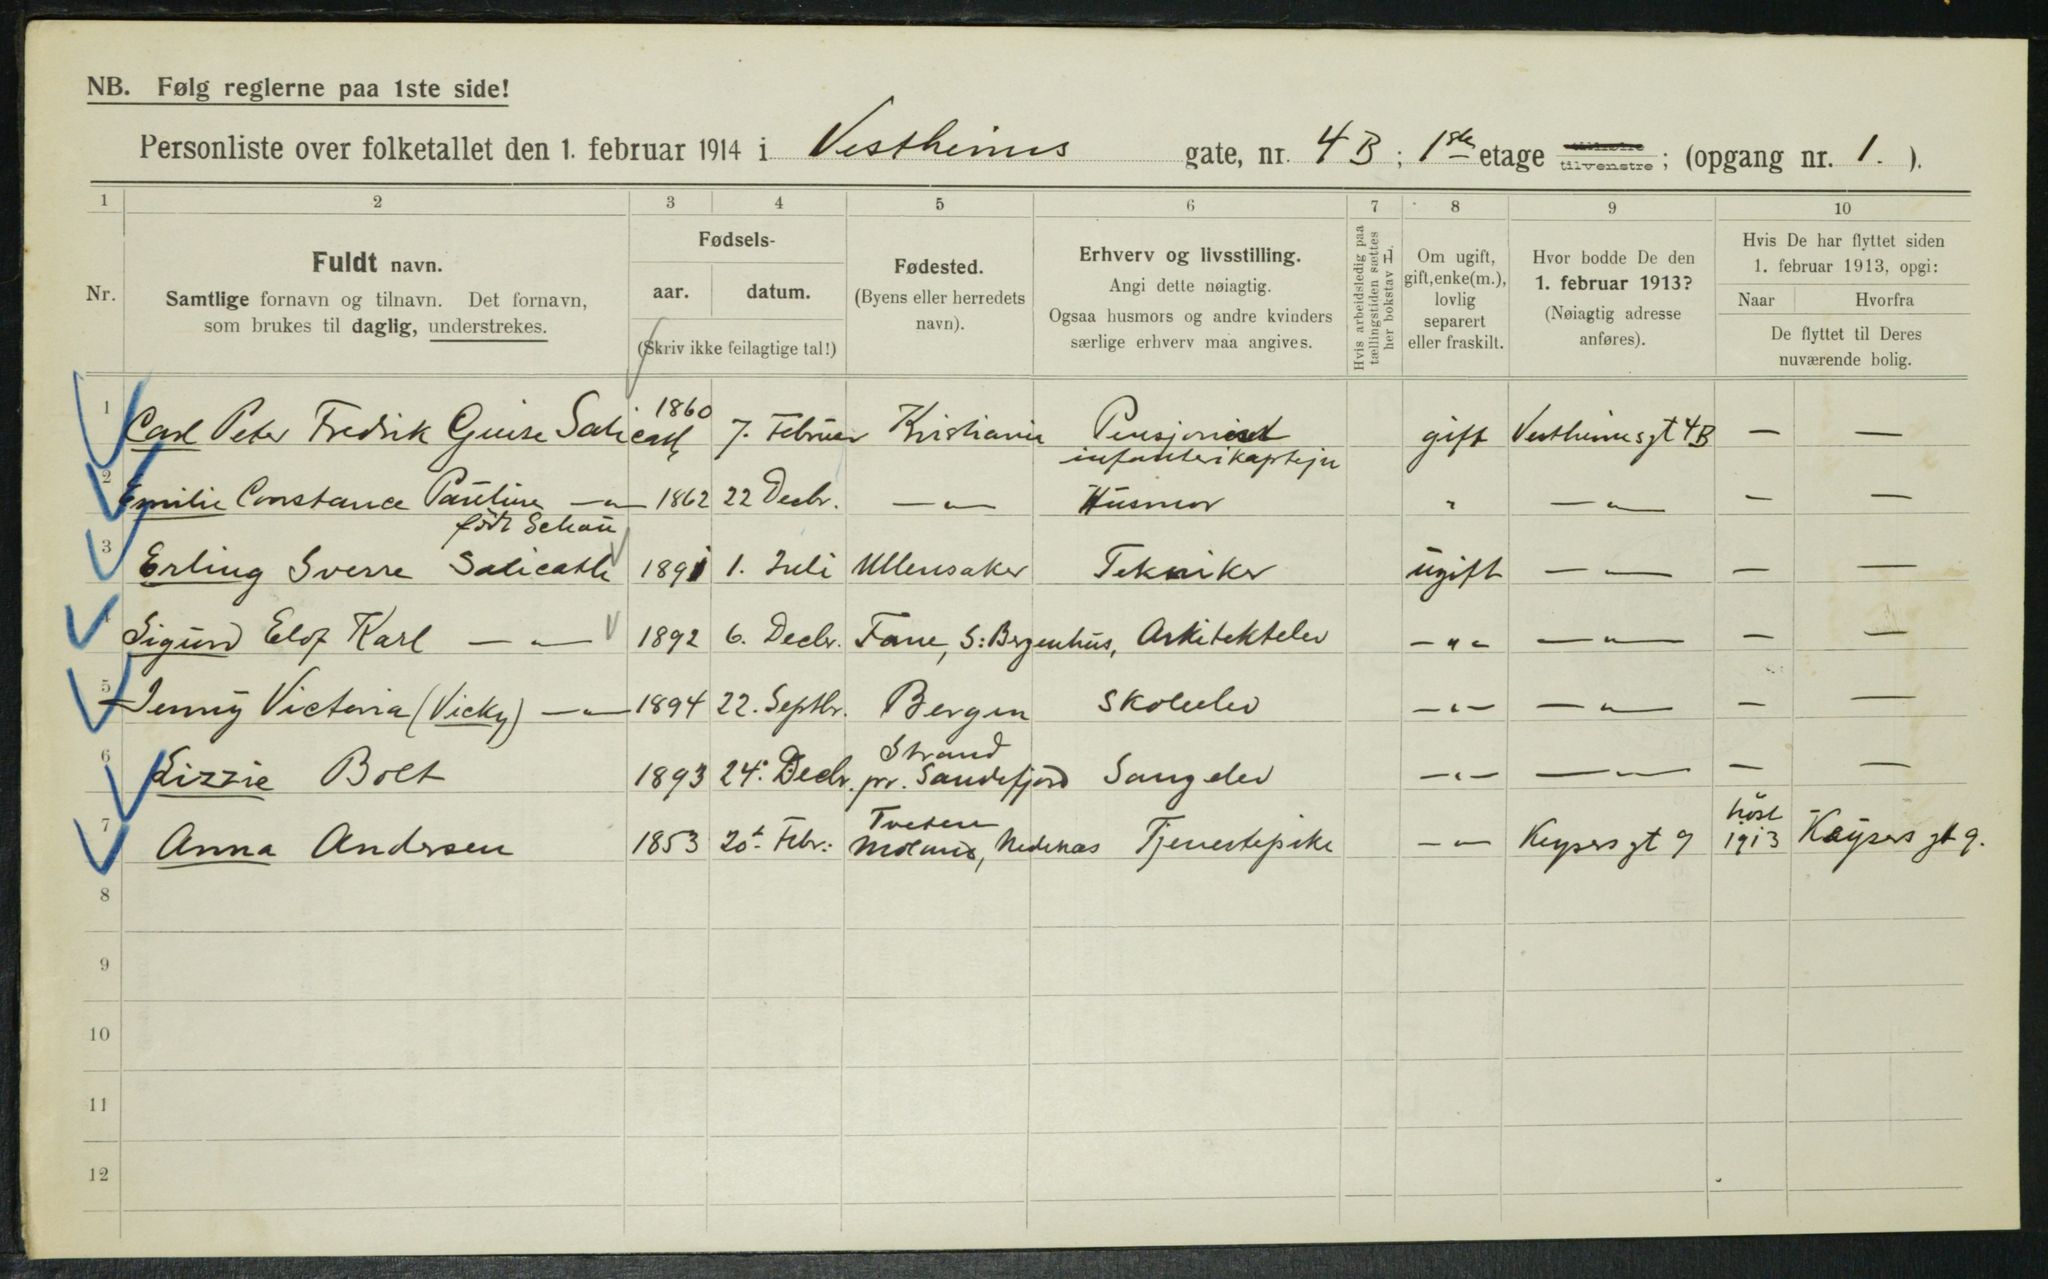 NB. Følg reglerne paa 1ste side!
Personliste over folketallet den 1. februar 1914 i Vestheims gate, nr. 4B; 1ste etage tilvenstre; (opgang nr. 1.).
1 2 3 4 5 6 7 8 9 10
Nr.
Fuldt navn.
Samtlige fornavn og tilnavn. Det fornavn,
som brukes til daglig, understrekes.
Fødsels-
aar. datum.
(Skriv ikke feilagtige tal!)
Fødested.
(Byens eller herredets
navn).
Erhverv og livsstilling.
Angi dette nøiagtig.
Ogsaa husmors og andre kvinders
særlige erhverv maa angives.
Hvis arbeidsledig paa
tællingstiden sættes
her bokstav L.
Om ugift,
gift, enke(m.),
lovlig
separert
eller fraskilt.
Hvor bodde De den
1. februar 1913?
(Nøiagtig adresse
anføres).
Hvis De har flyttet siden
1. februar 1913, opgi:
Naar Hvorfra
De flyttet til Deres
nuværende bolig.
1 Carl Peter Fredrik Salicath 1860 7. Februar Kristiania Pensjonist infanterikaptejn gift Vestheimsgt 4B — —
2 Emilie Constance Pauline —„— født Schau 1862 22 Decbr. —„— Husmor „ —„— — —
3 Erling Sverre Salicath 1891 1. Juli Ullensaker Tekniker ugift —„— — —
4 Sigurd Elof Karl —„— 1892 6. Decbr. Fane, S: Bergenhus, Arkitektelev —„— —„— — —
5 Jenny Victoria (Vicky) —„— 1894 22. Septbr. Bergen Skoleelev —„— —„— — —
6 Lizzie Bolt 1893 24. Decbr. Strand pr. Sandefjord Sangelev —„— —„— — —
7 Anna Andersen 1853 20. Febr. Tvetene Moland, Nedenæs Tjenestepike —„— Keysers gt 9 høst 1913 Keysers gt 9.
8
9
10
11
12